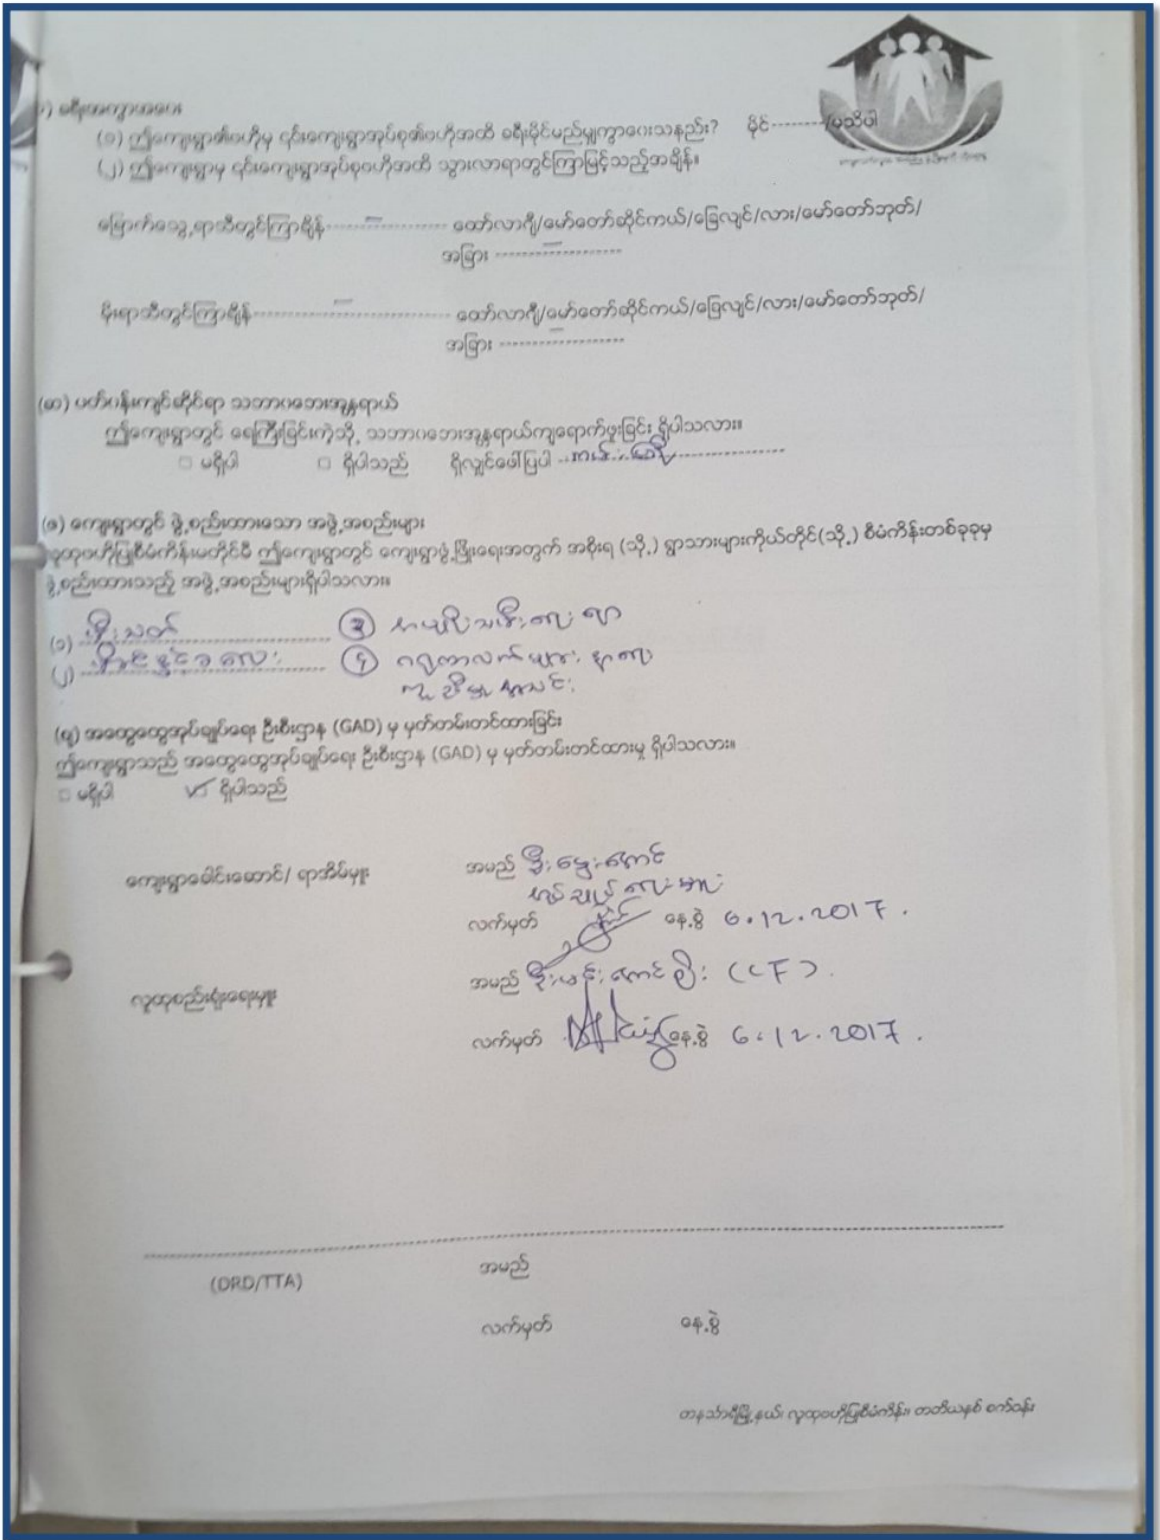 ) ခရီးအကွာအဝေး
(၁) ဤကျေးရွာ၏ဗဟိုမှ ၎င်းကျေးရွာအုပ်စု၏ဗဟိုအထိ ခရီးမိုင်မည်မျှကွာဝေးသနည်း? မိုင်--------/မသိပါ
(၂) ဤကျေးရွာမှ ၎င်းကျေးရွာအုပ်စုဗဟိုအထိ သွားလာရာတွင်ကြာမြင့်သည့်အချိန်။
ခြောက်သွေ့ရာသီတွင်ကြာချိန်-------------------- ထော်လာဂျီ/မော်တော်ဆိုင်ကယ်/ခြေလျင်/လား/မော်တော်ဘုတ်/
အခြား --------------------
မိုးရာသီတွင်ကြာချိန်-------------------------------- ထော်လာဂျီ/မော်တော်ဆိုင်ကယ်/ခြေလျင်/လား/မော်တော်ဘုတ်/
အခြား --------------------
(ဆ) ပတ်ဝန်းကျင်ဆိုင်ရာ သဘာဝဘေးအန္တရာယ်
ဤကျေးရွာတွင် ရေကြီးခြင်းကဲ့သို့ သဘာဝဘေးအန္တရာယ်ကျရောက်ဖူးခြင်း ရှိပါသလား။
□ မရှိပါ □ ရှိပါသည် ရှိလျှင်ဖော်ပြပါ
(ဇ) ကျေးရွာတွင် ဖွဲ့စည်းထားသော အဖွဲ့အစည်းများ
လူထုဗဟိုပြုစီမံကိန်းမတိုင်မီ ဤကျေးရွာတွင် ကျေးရွာဖွံ့ဖြိုးရေးအတွက် အစိုးရ (သို့) ရွာသားများကိုယ်တိုင်(သို့) စီမံကိန်းတစ်ခုခုမှ
ဖွဲ့စည်းထားသည့် အဖွဲ့အစည်းများရှိပါသလား။
(၁) မီးသတ် ③
(၂) ④
(ဈ) အထွေထွေအုပ်ချုပ်ရေး ဦးစီးဌာန (GAD) မှ မှတ်တမ်းတင်ထားခြင်း
ဤကျေးရွာသည် အထွေထွေအုပ်ချုပ်ရေး ဦးစီးဌာန (GAD) မှ မှတ်တမ်းတင်ထားမှု ရှိပါသလား။
□ မရှိပါ ✓□ ရှိပါသည်
ကျေးရွာခေါင်းဆောင်/ ရာအိမ်မှူး အမည်
လက်မှတ် နေ့စွဲ 6.12.2017.
လူထုစည်းရုံးရေးမှူး အမည် (CF).
လက်မှတ် နေ့စွဲ 6.12.2017.
(DRD/TTA) အမည်
လက်မှတ် နေ့စွဲ
တနင်္သာရီမြို့နယ်၊ လူထုဗဟိုပြုစီမံကိန်း၊ တတိယနှစ် စက်ဝန်း